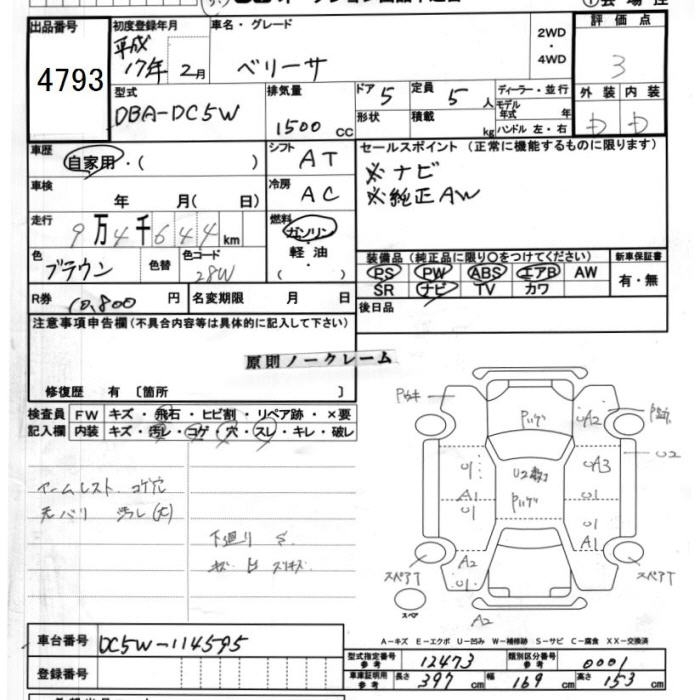 出品番号
4793
初度登録年月
平成
17年 2月
車名・グレード
ベリーサ
2WD
・
4WD
評価点
3
型式
DBA-DC5W
排気量
1500 cc
ドア 5
定員 5 人
形状
積載 kg
ディーラー・並行
モデル年式 年
ハンドル 左・右
外装 内装
車歴
自家用・( )
シフト
AT
セールスポイント (正常に機能するものに限ります)
※ナビ
※純正AW
車検
年 月( 日)
冷房
AC
走行
9万4千644km
燃料
ガソリン
・
軽油
・
( )
色
ブラウン
色替
色コード
28W
装備品 (純正品に限り○をつけてください)
新車保証書
PS PW ABS エアB AW
有・無
SR ナビ TV カワ
R券
10,800 円
名変期限 月 日
後日品
注意事項申告欄 (不具合内容等は具体的に記入して下さい)
原則ノークレーム
修復歴 有 〔箇所 〕
検査員
記入欄
FW キズ・飛石・ヒビ割・リペア跡・×要
内装 キズ・汚レ・コゲ・穴・スレ・キレ・破レ
アームレスト コゲ穴
天バリ 汚レ(大)
下廻り S
A2
A3
U2
U1
A1
U1
U1
U1
A1
A2
U1
スペアT
スペアT
スペア
A2
A-キズ E-エクボ U-凹み W-補修跡 S-サビ C-腐食 XX-交換済
車台番号
DC5W-114595
登録番号
型式指定番号
参考
12473
類別区分番号
参考
0001
車庫証明用
参考
長さ 397 cm
幅 169 cm
高さ 153 cm